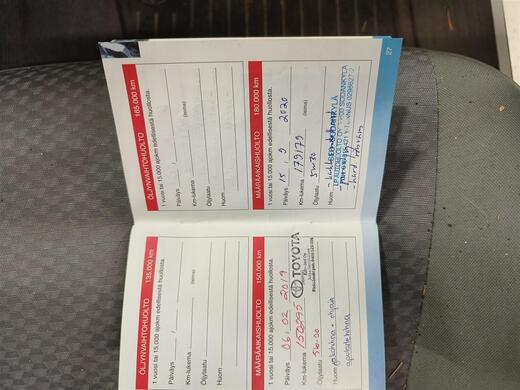 ÖLJYNVAIHTOHUOLTO 165.000 km
1 vuosi tai 15.000 ajokm edellisestä huollosta.
Päiväys
Km-lukema
(leima)
Öljylaatu
Huom
MÄÄRÄAIKAISHUOLTO 180.000 km
1 vuosi tai 15.000 ajokm edellisestä huollosta.
Päiväys 15 , 9 2020
Km-lukema 179179
Öljylaatu 5W30
Huom
27
ÖLJYNVAIHTOHUOLTO 135.000 km
1 vuosi tai 15.000 ajokm edellisestä huollosta.
Päiväys
Km-lukema
(leima)
Öljylaatu
Huom
MÄÄRÄAIKAISHUOLTO 150.000 km
1 vuosi tai 15.000 ajokm edellisestä huollosta.
Päiväys 06, 02 2019
Km-lukema 150295
TOYOTA
Öljylaatu 5W-30
Huom